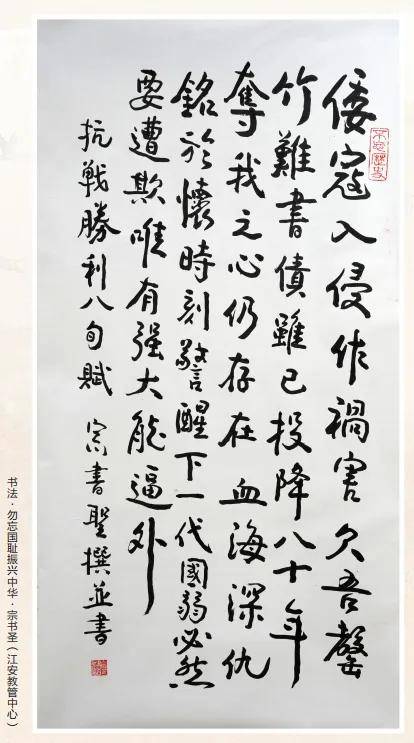 不忘歷史
倭寇入侵作禍害欠吾罄
竹難書債雖已投降八十年
奪我之心仍存在血海深仇
銘於懷時刻警醒下一代國弱必然
要遭欺唯有强大能逼外
抗戰勝利八旬賦 宗書聖撰並書
书法·勿忘国耻振兴中华·宗书圣（江安教管中心）